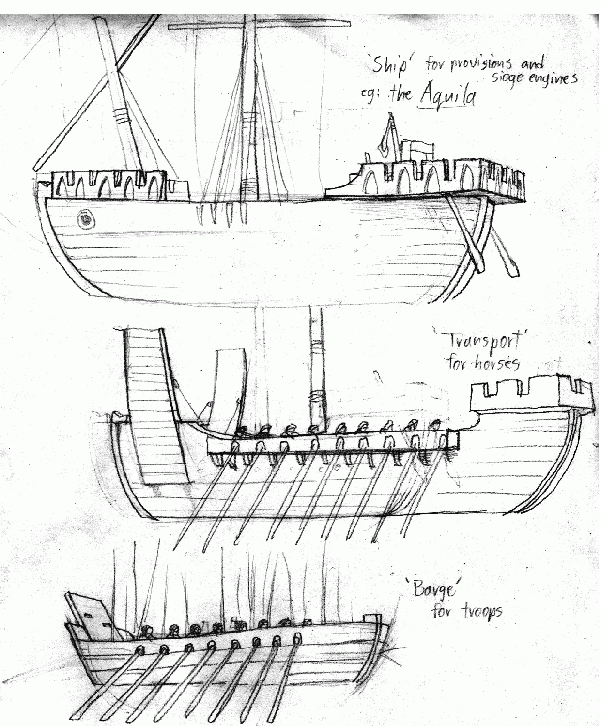 'Ship' for provisions and
siege engines
eg: the Aquila
'Transport'
for horses
'Barge'
for troops